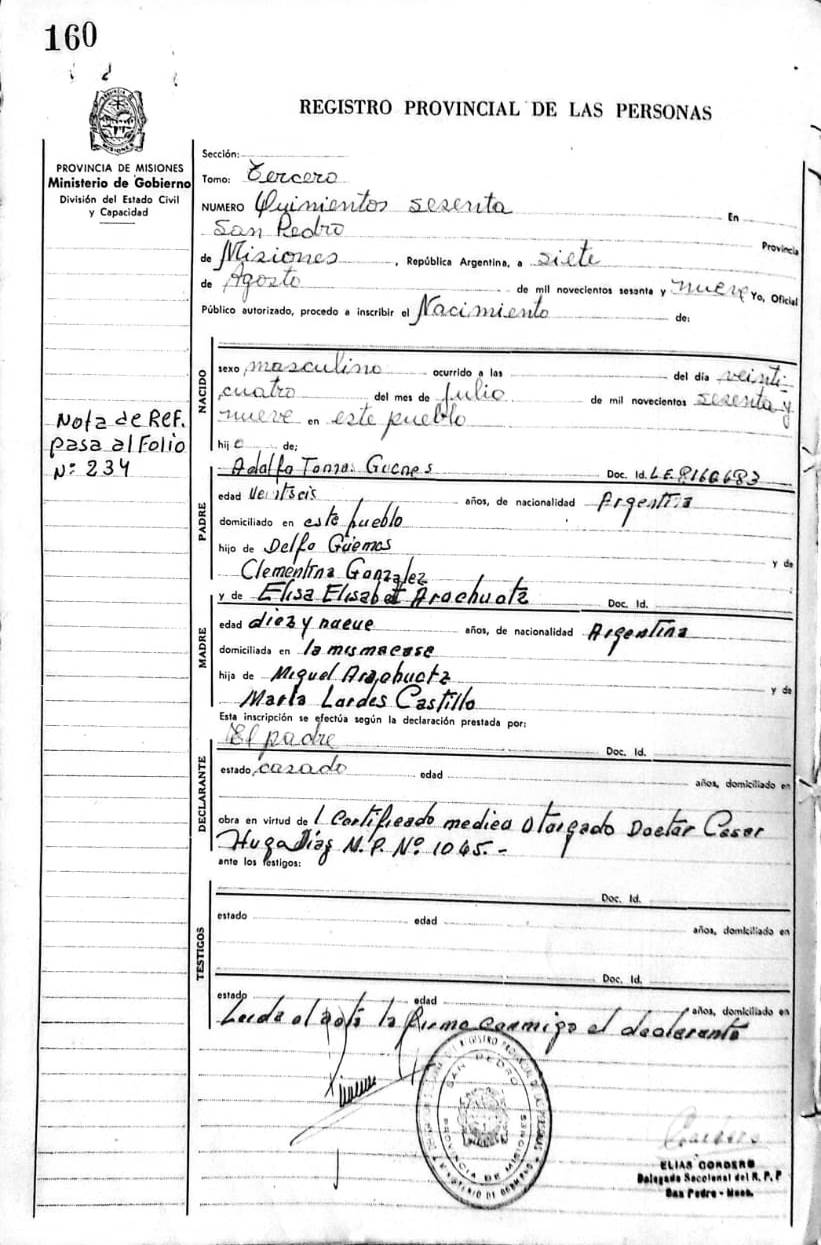 160
REGISTRO PROVINCIAL DE LAS PERSONAS
PROVINCIA DE MISIONES
Ministerio de Gobierno
División del Estado Civil
y Capacidad
Nota de Ref.
pasa al Folio
Nº 234
Sección:
Tomo: Tercero
NUMERO Quinientos sesenta En
San Pedro Provincia
de Misiones, República Argentina, a siete
de Agosto de mil novecientos sesanta y nueve Yo, Oficial
Público autorizado, procedo a inscribir el Nacimiento de:
NACIDO
sexo masculino ocurrido a las del día veinti
cuatro del mes de julio de mil novecientos sesenta y
nueve en este pueblo
hijo de:
PADRE
Adolfo Tomas Doc. Id. L.E.
edad años, de nacionalidad Argentina
domiciliado en este pueblo
hijo de Delfo Güemes y de
Clementina Gonzalez
y de Elisa Elisabet Doc. Id.
MADRE
edad diez y nueve años, de nacionalidad Argentina
domiciliada en la misma casa
hija de Miguel y de
Maria Lordes Castillo
Esta inscripción se efectúa según la declaración prestada por:
El padre Doc. Id.
DECLARANTE
estado, casado edad años, domiciliado en
obra en virtud de l Certificado medico otorgado Doctor Cesar
Hugo Díaz M.P. Nº 1045.-
ante los testigos:
TESTIGOS
Doc. Id.
estado edad años, domiciliado en
Doc. Id.
estado edad años, domiciliado en
Leida el acta la firma conmigo el declarante
SAN PEDRO
PROVINCIA DE MISIONES
MINISTERIO DE GOBIERNO
ELIAS CORDERO
Delegado Seccional del R. P. P
San Pedro - Mnes.